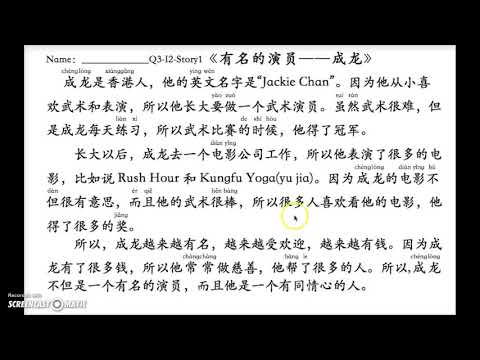 Name：______________Q3-I2-Story1《有名的演员——成龙》
chénglóng xiānggǎng yīng wén
成龙是香港人，他的英文名字是“Jackie Chan”。因为他从小喜
yào zuò suī rán
欢武术和表演，所以他长大要做一个武术演员。虽然武术很难，但
liàn xí de shí hòu
是成龙每天练习，所以武术比赛的时候，他得了冠军。
diàn yǐng
长大以后，成龙去一个电影公司工作，所以他表演了很多的电
chénglóng diàn yǐng
影，比如说 Rush Hour 和 Kungfu Yoga(yu jia)。因为成龙的电影不
dàn ér qiě hěn bàng
但很有意思，而且他的武术很棒，所以很多人喜欢看他的电影，他
jiǎng
得了很多的奖。
所以，成龙越来越有名，越来越受欢迎，越来越有钱。因为成
chángcháng bāng le chénglóng
龙有了很多钱，所以他常常做慈善，他帮了很多的人。所以,成龙
不但是一个有名的演员，而且他是一个有同情心的人。
Recorded with
SCREENCAST-O-MATIC